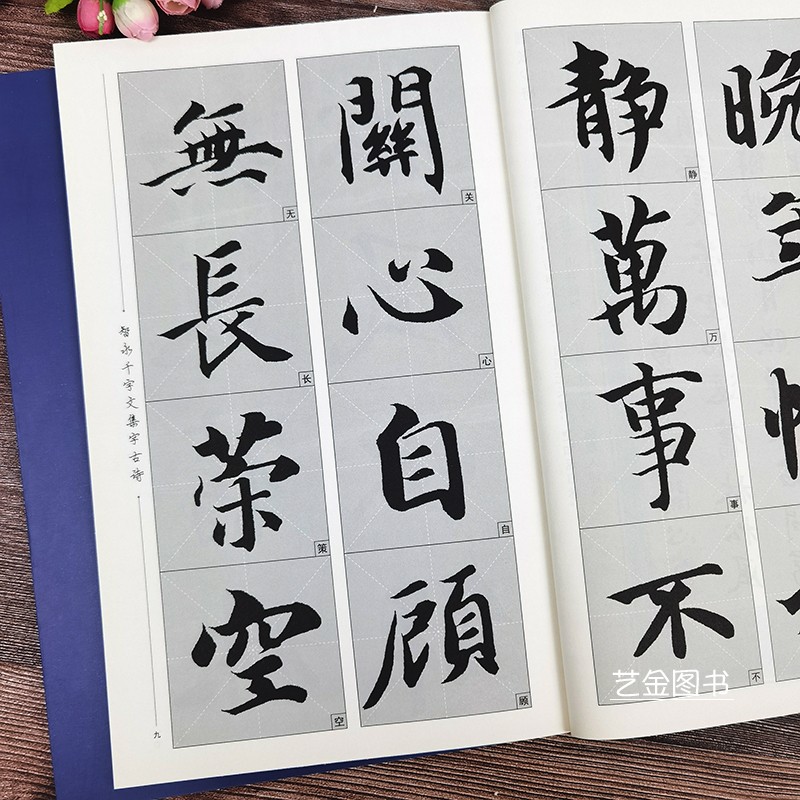 晚年惟
静萬事不
静万事不
關心自顧
关心自顾
無長策空
无长策空
智永千字文集字古诗
九
艺金图书